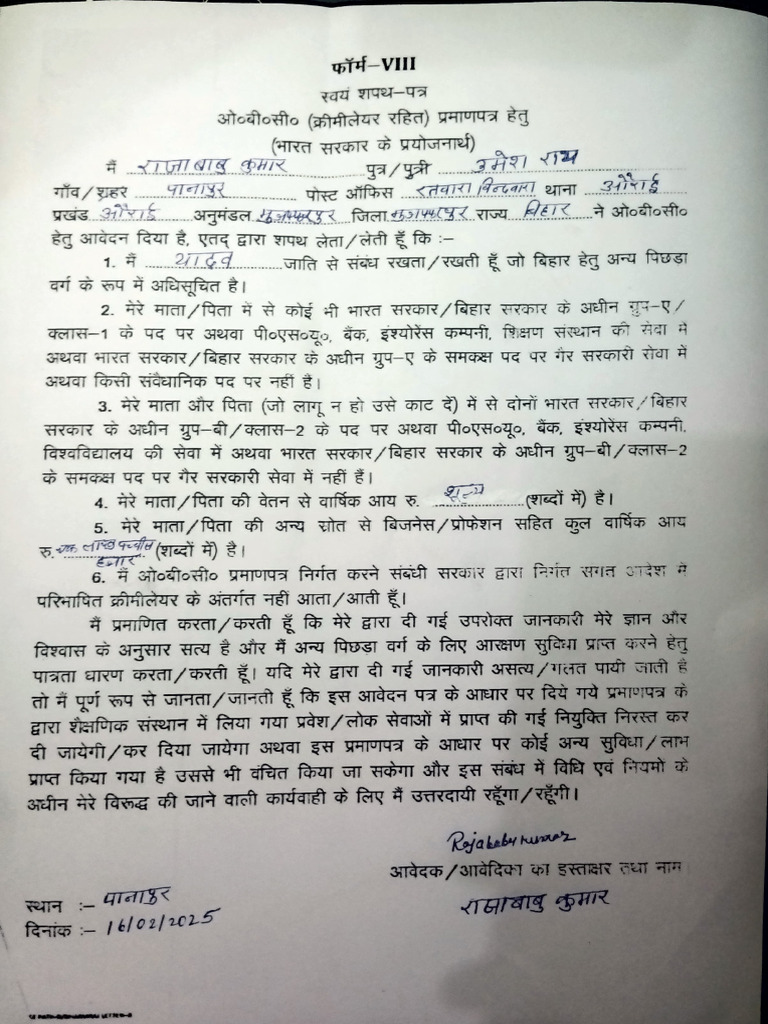 फॉर्म–VIII
स्वयं शपथ–पत्र
ओ०बी०सी० (क्रीमीलेयर रहित) प्रमाणपत्र हेतु
(भारत सरकार के प्रयोजनार्थ)
मैं राजाबाबु कुमार पुत्र/पुत्री उमेश राय
गाँव/शहर पानापुर पोस्ट ऑफिस रतवारा बिन्दवारा थाना औराई
प्रखंड औराई अनुमंडल मुजफ्फरपुर जिला मुजफ्फरपुर राज्य बिहार ने ओ०बी०सी०
हेतु आवेदन दिया है, एतद् द्वारा शपथ लेता/लेती हूँ कि :–
1. मैं यादव जाति से संबंध रखता/रखती हूँ जो बिहार हेतु अन्य पिछड़ा
वर्ग के रूप में अधिसूचित है।
2. मेरे माता/पिता में से कोई भी भारत सरकार/बिहार सरकार के अधीन ग्रुप–ए/
क्लास–1 के पद पर अथवा पी०एस०यू०, बैंक, इंश्योरेंस कम्पनी, शिक्षण संस्थान की सेवा में
अथवा भारत सरकार/बिहार सरकार के अधीन ग्रुप–ए के समकक्ष पद पर गैर सरकारी सेवा में
अथवा किसी संवैधानिक पद पर नहीं है।
3. मेरे माता और पिता (जो लागू न हो उसे काट दें) में से दोनों भारत सरकार/बिहार
सरकार के अधीन ग्रुप–बी/क्लास–2 के पद पर अथवा पी०एस०यू०, बैंक, इंश्योरेंस कम्पनी,
विश्वविद्यालय की सेवा में अथवा भारत सरकार/बिहार सरकार के अधीन ग्रुप–बी/क्लास–2
के समकक्ष पद पर गैर सरकारी सेवा में नहीं हैं।
4. मेरे माता/पिता की वेतन से वार्षिक आय रु. शून्य (शब्दों में) है।
5. मेरे माता/पिता की अन्य स्रोत से बिजनेस/प्रोफेशन सहित कुल वार्षिक आय
रु. एक लाख पच्चीस हजार (शब्दों में) है।
6. मैं ओ०बी०सी० प्रमाणपत्र निर्गत करने संबंधी सरकार द्वारा निर्गत संगत आदेश में
परिभाषित क्रीमीलेयर के अंतर्गत नहीं आता/आती हूँ।
मैं प्रमाणित करता/करती हूँ कि मेरे द्वारा दी गई उपरोक्त जानकारी मेरे ज्ञान और
विश्वास के अनुसार सत्य है और मैं अन्य पिछड़ा वर्ग के लिए आरक्षण सुविधा प्राप्त करने हेतु
पात्रता धारण करता/करती हूँ। यदि मेरे द्वारा दी गई जानकारी असत्य/गलत पायी जाती है
तो मैं पूर्ण रूप से जानता/जानती हूँ कि इस आवेदन पत्र के आधार पर दिये गये प्रमाणपत्र के
द्वारा शैक्षणिक संस्थान में लिया गया प्रवेश/लोक सेवाओं में प्राप्त की गई नियुक्ति निरस्त कर
दी जायेगी/कर दिया जायेगा अथवा इस प्रमाणपत्र के आधार पर कोई अन्य सुविधा/लाभ
प्राप्त किया गया है उससे भी वंचित किया जा सकेगा और इस संबंध में विधि एवं नियमों के
अधीन मेरे विरूद्ध की जाने वाली कार्यवाही के लिए मैं उत्तरदायी रहूँगा/रहूँगी।
Rajababu kumar
आवेदक/आवेदिका का हस्ताक्षर तथा नाम
राजाबाबु कुमार
स्थान :– पानापुर
दिनांक :– 16/02/2025